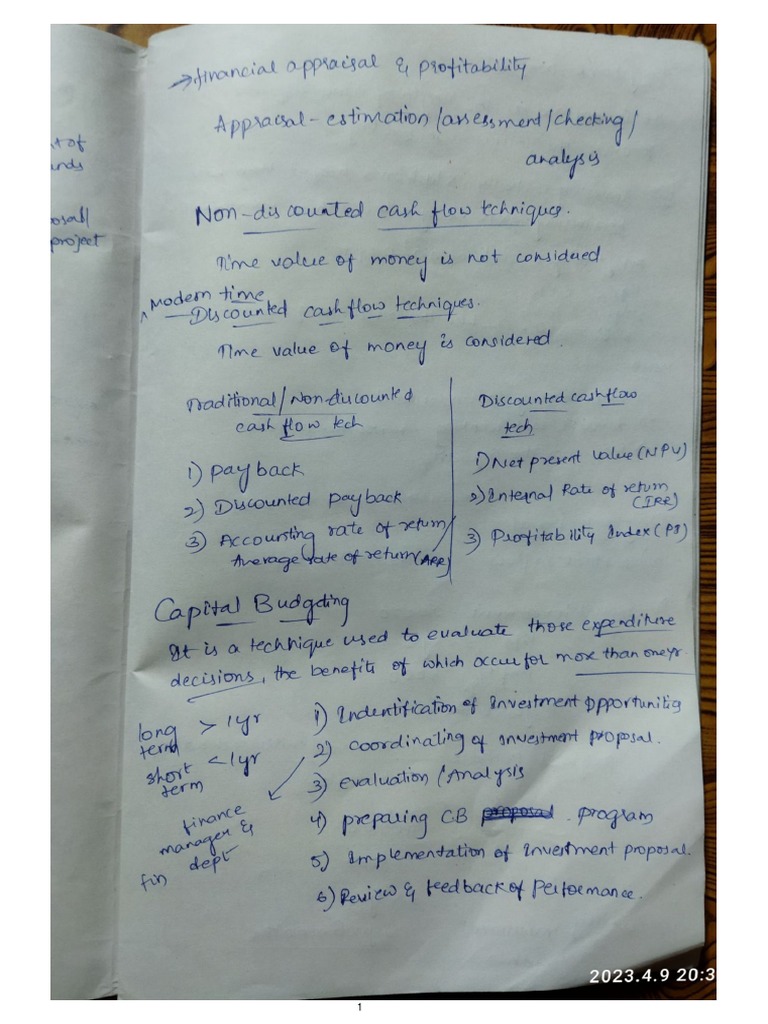 t of
nds
osal
project
→ financial appraisal & profitability
Appraisal - estimation/assessment/checking/
analysis
Non-discounted cash flow techniques.
Time value of money is not considued
Modern time
^ Discounted cash flow techniques.
Time value of money is considered.
Traditional/Non-discounted
cash flow tech
1) payback
2) Discounted payback
3) Accounting rate of return/
Average rate of return (ARR)
Discounted cashflow
tech
1) Net present value (NPV)
2) Internal Rate of return
(IRR)
3) Profitability Index (PI)
Capital Budgeting
It is a technique used to evaluate those expenditure
decisions, the benefits of which occur for more than one yr.
long > 1yr
term
short < 1yr
term
finance
manager &
fin dept
1) Indentification of Investment Opportunities
2) coordinating of investment proposal.
3) evaluation / Analysis
4) preparing CB proposal program
5) Implementation of Investment proposal.
6) Review & feedback of performance.
2023.4.9 20:3
1